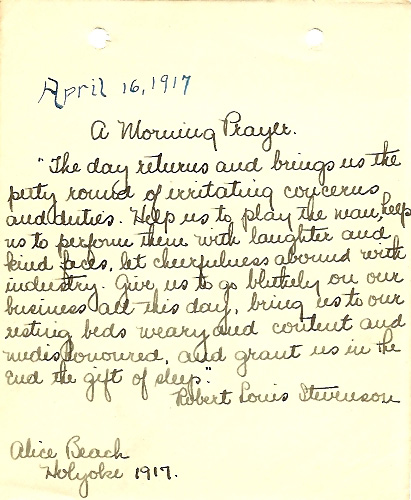 April 16, 1917
A Morning Prayer.
"The day returns and brings us the
petty round of irritating concerns
and duties. Help us to play the man, help
us to perform them with laughter and
kind faces, let cheerfulness abound with
industry. Give us to go blithely on our
business all this day, bring us to our
resting beds weary and content and
undishonoured, and grant us in the
end the gift of sleep."
Robert Louis Stevenson
Alice Beach
Holyoke 1917.